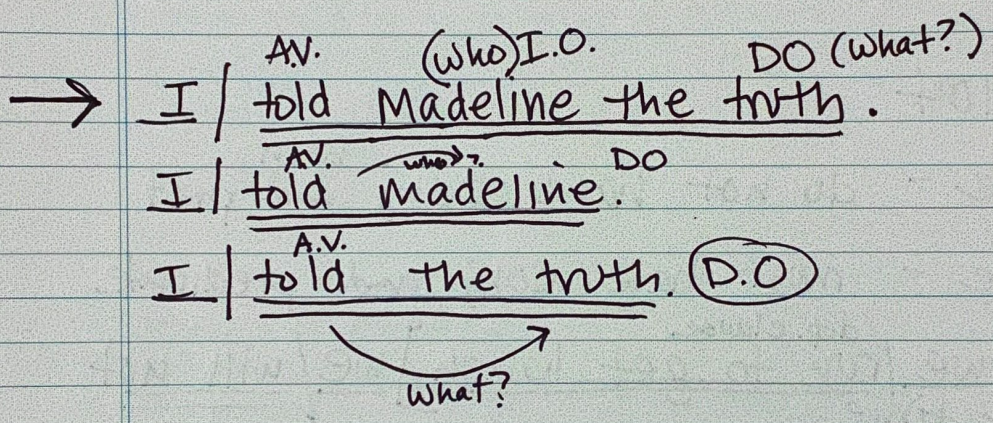 A.V. (who) I.O. DO (what?)
I | told Madeline the truth.
A.V. who? DO
I | told madeline.
A.V.
I | told the truth. D.O
what?